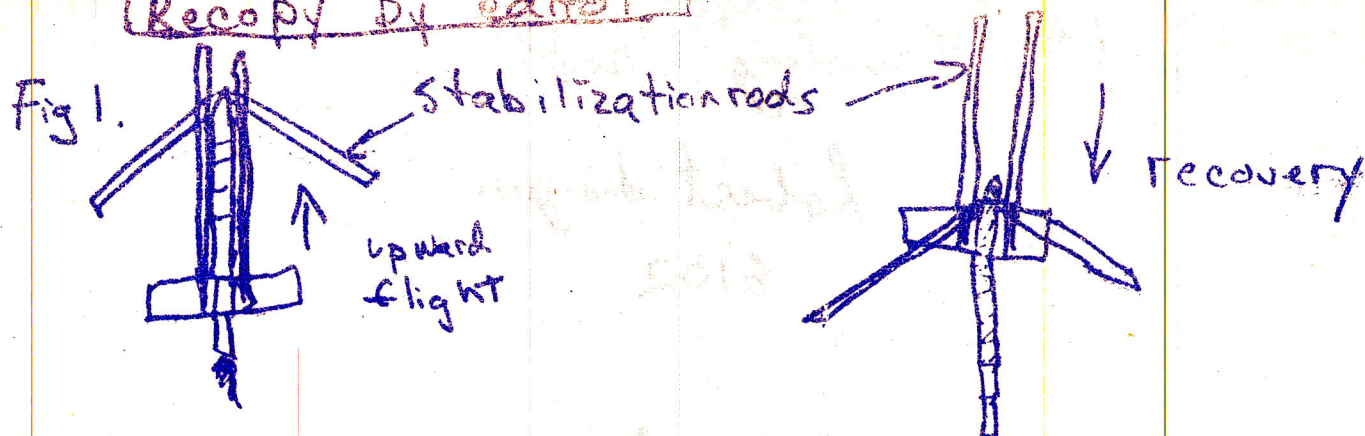 Recopy by
Fig 1.
Stabilization rods
upward
flight
recovery